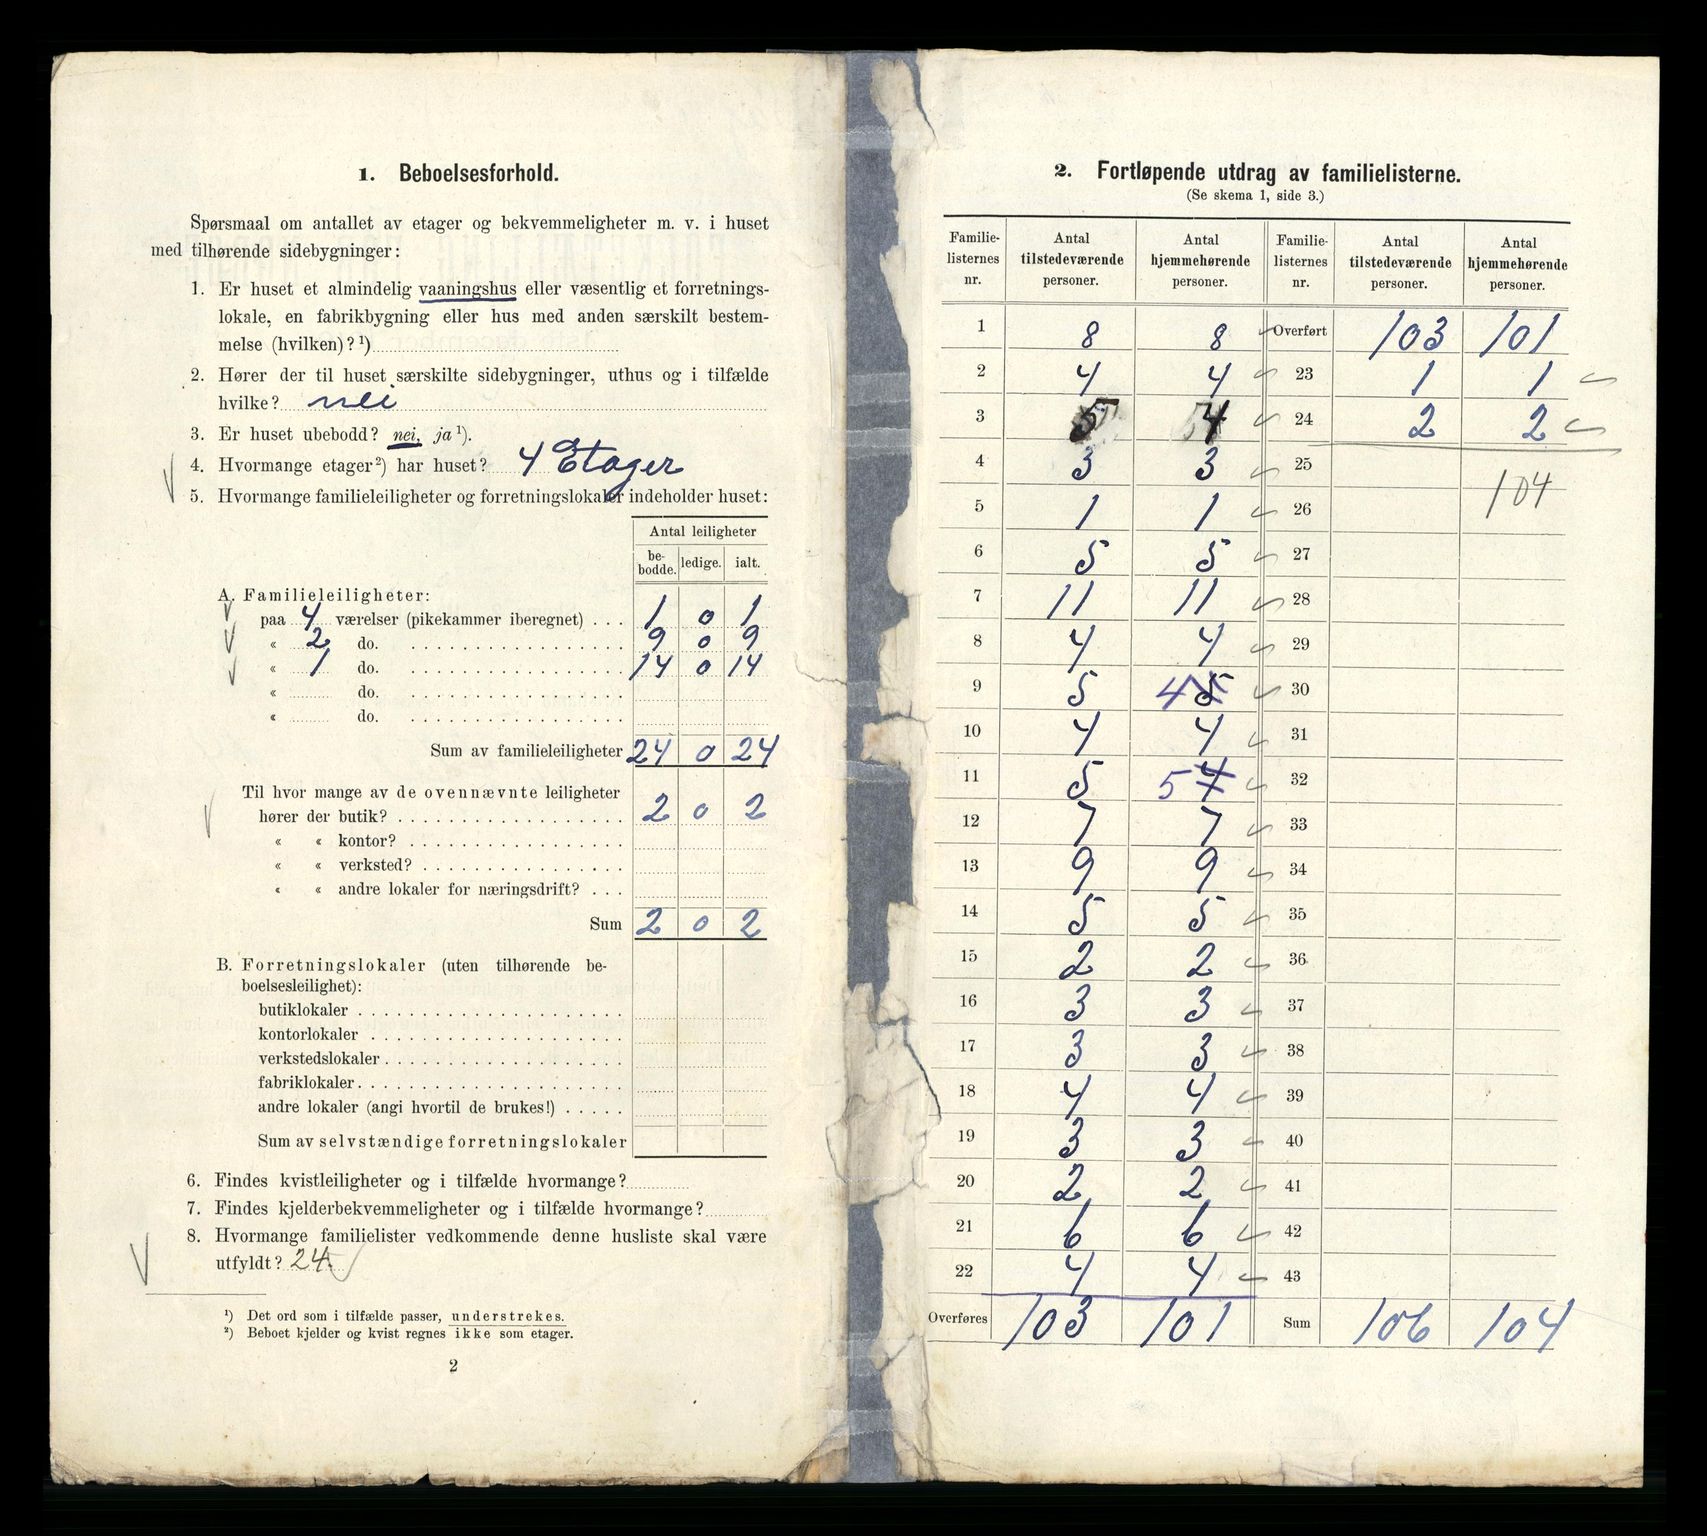 1. Beboelsesforhold.
Spørsmaal om antallet av etager og bekvemmeligheter m. v. i huset
med tilhørende sidebygninger:
1. Er huset et almindelig vaaningshus eller væsentlig et forretnings-
lokale, en fabrikbygning eller hus med anden særskilt bestem-
melse (hvilken)? ¹)
2. Hører der til huset særskilte sidebygninger, uthus og i tilfælde
hvilke? nei
3. Er huset ubebodd? nei, ja ¹).
4. Hvormange etager²) har huset? 4 Etager
5. Hvormange familieleiligheter og forretningslokaler indeholder huset:
Antal leiligheter
be-bodde. ledige. ialt.
A. Familieleiligheter:
paa 4 værelser (pikekammer iberegnet) . . . 1 0 1
« 2 do. 9 0 9
« 1 do. 14 0 14
« do.
« do.
Sum av familieleiligheter 24 0 24
Til hvor mange av de ovennævnte leiligheter
hører der butik? 2 0 2
« « kontor?
« « verksted?
« « andre lokaler for næringsdrift? . . .
Sum 2 0 2
B. Forretningslokaler (uten tilhørende be-
boelsesleilighet):
butiklokaler
kontorlokaler
verkstedslokaler
fabriklokaler
andre lokaler (angi hvortil de brukes!)
Sum av selvstændige forretningslokaler
6. Findes kvistleiligheter og i tilfælde hvormange?
7. Findes kjelderbekvemmeligheter og i tilfælde hvormange?
8. Hvormange familielister vedkommende denne husliste skal være
utfyldt? 24.
¹) Det ord som i tilfælde passer, understrekes.
²) Beboet kjelder og kvist regnes ikke som etager.
2
2. Fortløpende utdrag av familielisterne.
(Se skema 1, side 3.)
Familie-listernes nr. Antal tilstedeværende personer. Antal hjemmehørende personer. Familie-listernes nr. Antal tilstedeværende personer. Antal hjemmehørende personer.
1 8 8 Overført 103 101
2 4 4 23 1 1
3 5 4 24 2 2
4 3 3 25
104
5 1 1 26
6 5 5 27
7 11 11 28
8 4 4 29
9 5 4 5 30
10 4 4 31
11 5 5 4 32
12 7 7 33
13 9 9 34
14 5 5 35
15 2 2 36
16 3 3 37
17 3 3 38
18 4 4 39
19 3 3 40
20 2 2 41
21 6 6 42
22 4 4 43
Overføres 103 101 Sum 106 104